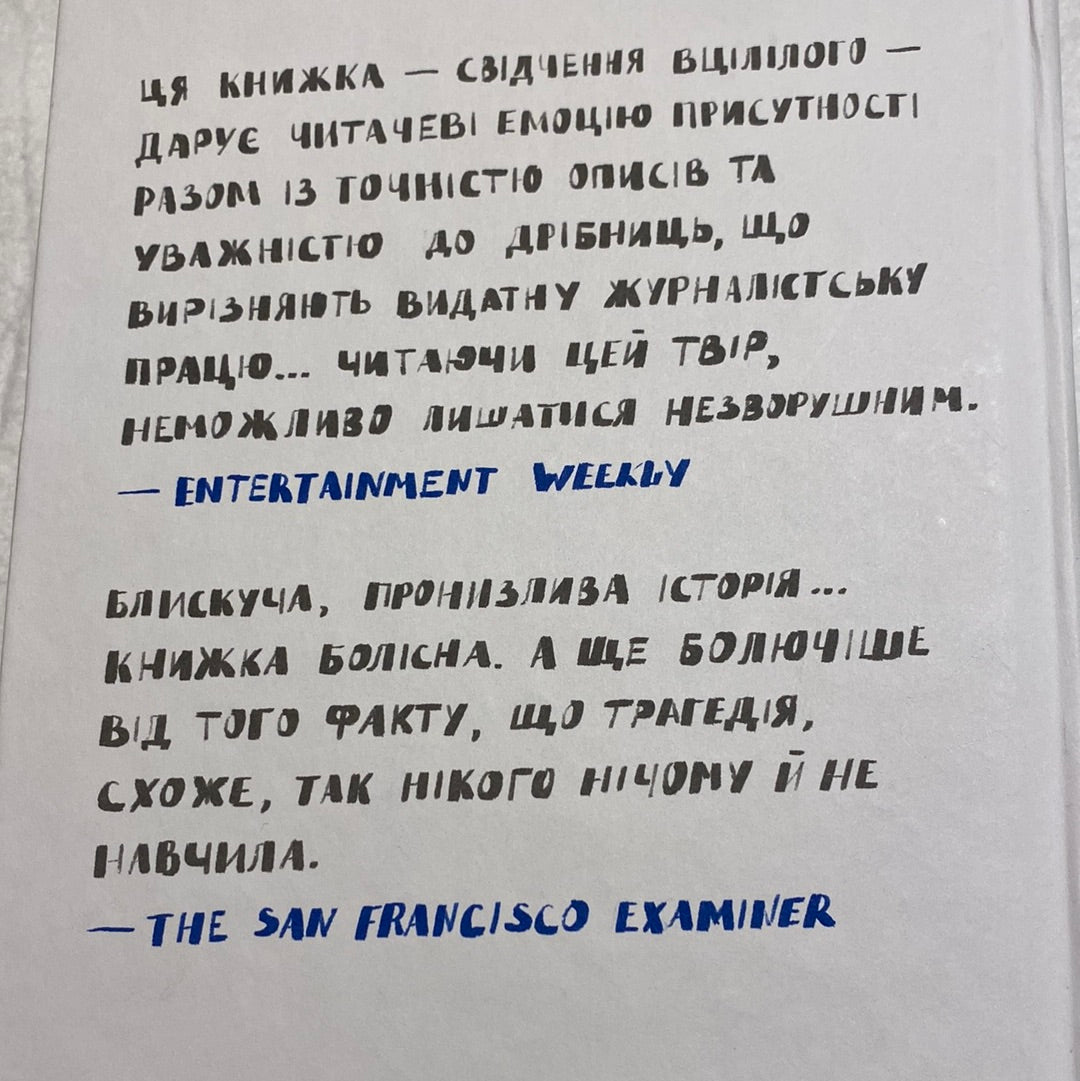 ЦЯ КНИЖКА — СВІДЧЕННЯ ВЦІЛІЛОГО —
ДАРУЄ ЧИТАЧЕВІ ЕМОЦІЮ ПРИСУТНОСТІ
РАЗОМ ІЗ ТОЧНІСТЮ ОПИСІВ ТА
УВАЖНІСТЮ ДО ДРІБНИЦЬ, ЩО
ВИРІЗНЯЮТЬ ВИДАТНУ ЖУРНАЛІСТСЬКУ
ПРАЦЮ... ЧИТАЮЧИ ЦЕЙ ТВІР,
НЕМОЖЛИВО ЛИШАТИСЯ НЕЗВОРУШНИМ.
— ENTERTAINMENT WEEKLY
БЛИСКУЧА, ПРОНИЗЛИВА ІСТОРІЯ...
КНИЖКА БОЛІСНА. А ЩЕ БОЛЮЧІШЕ
ВІД ТОГО ФАКТУ, ЩО ТРАГЕДІЯ,
СХОЖЕ, ТАК НІКОГО НІЧОМУ Й НЕ
НАВЧИЛА.
— THE SAN FRANCISCO EXAMINER